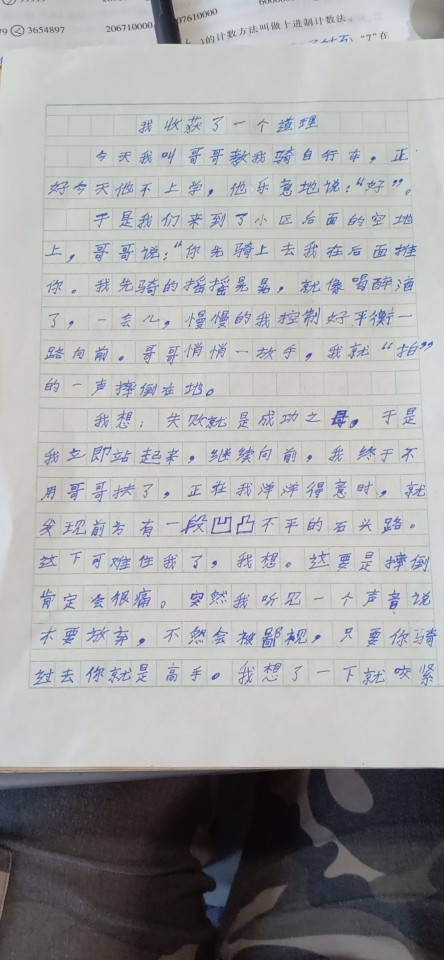 3654897
206710000
07610000
)的计数方法叫做十进制计数法
“7”在
我收获了一个道理
今天我叫哥哥教我骑自行车，正
好今天他不上学，他乐意地说：“好”。
于是我们来到了小区后面的空地
上，哥哥说：“你先骑上去我在后面推
你。我先骑的摇摇晃晃，就像喝醉酒
了，一会儿，慢慢的我控制好平衡一
路向前。哥哥悄悄一放手，我就“拍”
的一声摔倒在地。
我想：失败就是成功之母，于是
我立即站起来，继续向前，我终于不
用哥哥扶了，正在我洋洋得意时，就
发现前方有一段凹凸不平的石头路。
这下可难住我了，我想。这要是摔倒
肯定会很痛。突然我听见一个声音说
不要放弃，不然会被鄙视，只要你骑
过去你就是高手。我想了一下就咬紧